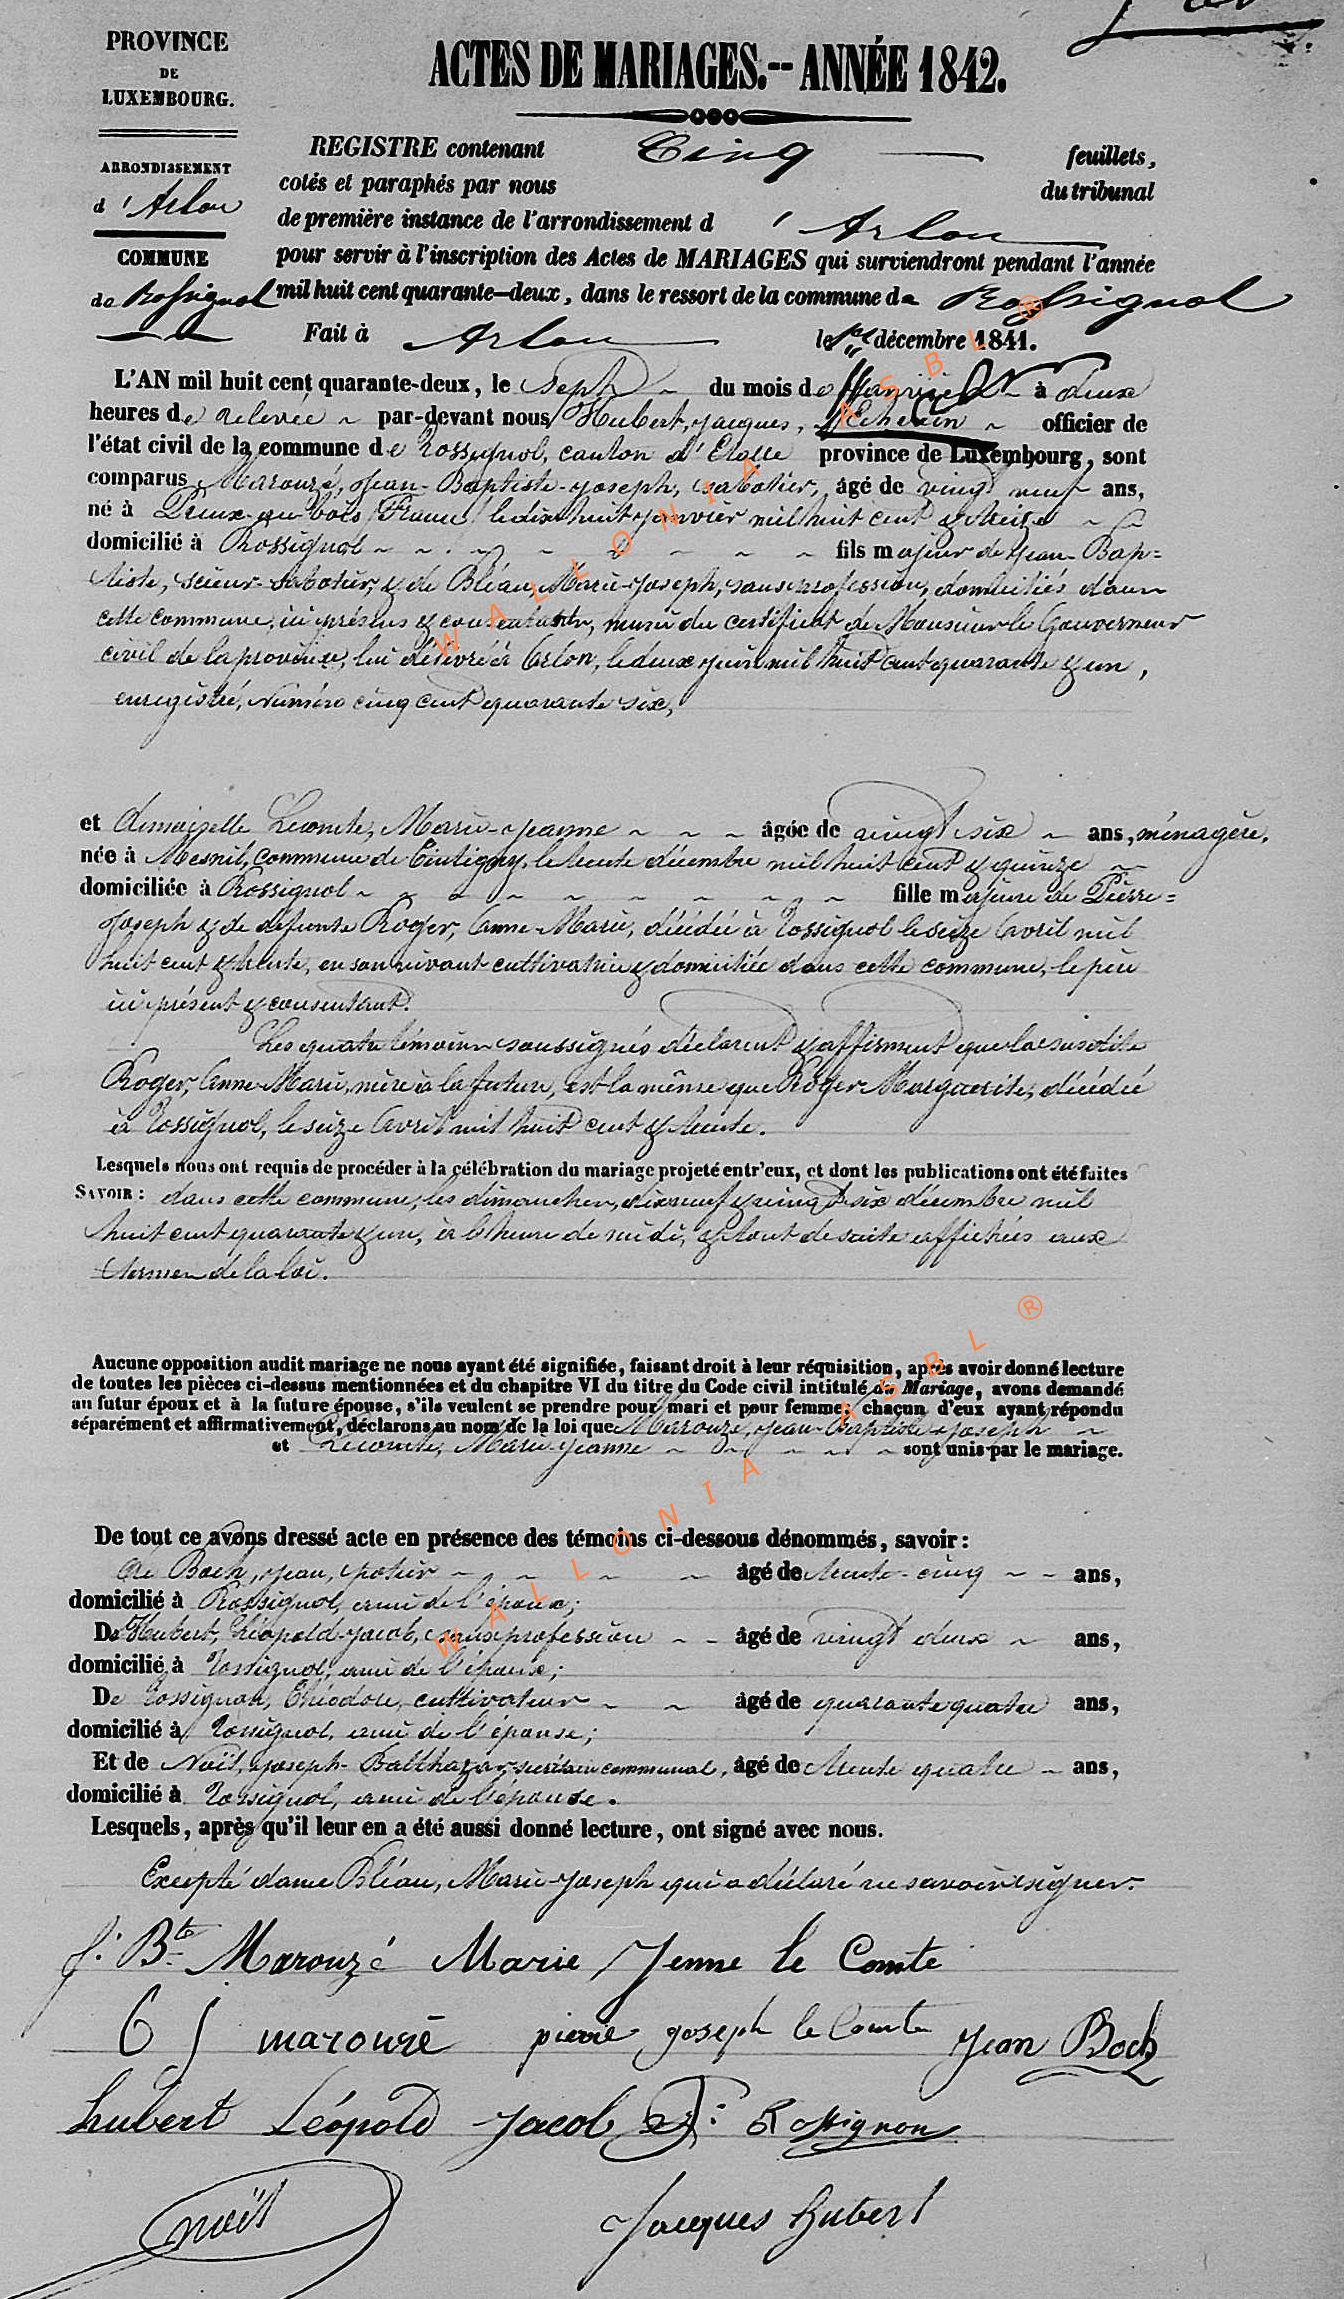 PROVINCE
DE
LUXEMBOURG.
ARRONDISSEMENT
d'Arlon
COMMUNE
de Rossignol
ACTES DE MARIAGES.-- ANNÉE 1842.
REGISTRE contenant Cinq feuillets,
cotés et paraphés par nous du tribunal
de première instance de l'arrondissement d'Arlon
pour servir à l'inscription des Actes de MARIAGES qui surviendront pendant l'année
mil huit cent quarante-deux, dans le ressort de la commune de Rossignol
Fait à Arlon le 1er décembre 1841.
L'AN mil huit cent quarante-deux, le sept du mois de Janvier à deux
heures de relevée par-devant nous Hubert, Jacques, Echevin officier de
l'état civil de la commune de Rossignol, canton d'Etalle province de Luxembourg, sont
comparus Marouzé, Jean-Baptiste-Joseph, sabotier, âgé de vingt neuf ans,
né à au bois (France) le dix huit Janvier mil huit cent & treize
domicilié à Rossignol fils majeur de Jean-Bap=
tiste, scieur-sabotier, & de Bléau, Marie-Joseph, sans profession, domiciliés dans
cette commune, ici présens & consentants, muni du certificat de Monsieur le Gouverneur
civil de la province, lui délivré à Arlon, le deux Juin mil huit cent quarante & un,
enregistré, Numéro cinq cent quarante six,
et demoiselle Lecomte, Marie-Jeanne âgée de vingt six ans, ménagère,
née à Mesnil, commune de Tintigny, le trente décembre mil huit cent & quinze
domiciliée à Rossignol fille majeure de Pierre=
Joseph & de défunte Roger, Anne-Marie, décédée à Rossignol le seize Avril mil
huit cent & trente, en son vivant cultivatrice & domiciliée dans cette commune, le père
ici présent & consentant.
Les quatre témoins soussignés déclarent & affirment que la susdite
Roger, Anne-Marie, mère à la future, est la même que Roger Marguerite, décédée
à Rossignol, le seize Avril mil huit cent & trente.
Lesquels nous ont requis de procéder à la célébration du mariage projeté entr'eux, et dont les publications ont été faites
SAVOIR : dans cette commune, les dimanches, dix neuf & vingt six décembre mil
huit cent quarante & un, à l'heure de midi, & tout de suite affichées aux
termes de la loi.
Aucune opposition audit mariage ne nous ayant été signifiée, faisant droit à leur réquisition, après avoir donné lecture
de toutes les pièces ci-dessus mentionnées et du chapitre VI du titre du Code civil intitulé du Mariage, avons demandé
au futur époux et à la future épouse, s'ils veulent se prendre pour mari et pour femme, chacun d'eux ayant répondu
séparément et affirmativement, déclarons au nom de la loi que Marouzé, Jean-Baptiste-Joseph
et Lecomte, Marie-Jeanne sont unis par le mariage.
De tout ce avons dressé acte en présence des témoins ci-dessous dénommés, savoir :
de Boch, Jean, potier âgé de trente-cinq ans,
domicilié à Rossignol, ami de l'épouse;
De Hubert, Léopold-Jacob, sans profession âgé de vingt deux ans,
domicilié à Rossignol, ami de l'épouse;
De Rossignon, Théodore, cultivateur âgé de quarante quatre ans,
domicilié à Rossignol, ami de l'épouse;
Et de Noël, Joseph-Balthazar, secrétaire communal, âgé de trente quatre ans,
domicilié à Rossignol, ami de l'épouse.
Lesquels, après qu'il leur en a été aussi donné lecture, ont signé avec nous.
Excepté dame Bléau, Marie-Joseph qui a déclaré ne savoir signer.
J. Bte Marouzé Marie Jenne le Comte
marouzé pierre joseph le Comte Jean Boch
hubert Léopold Jacob Rossignon
Noël Jacques Hubert
WALLONIA ASBL ®
WALLONIA ASBL ®